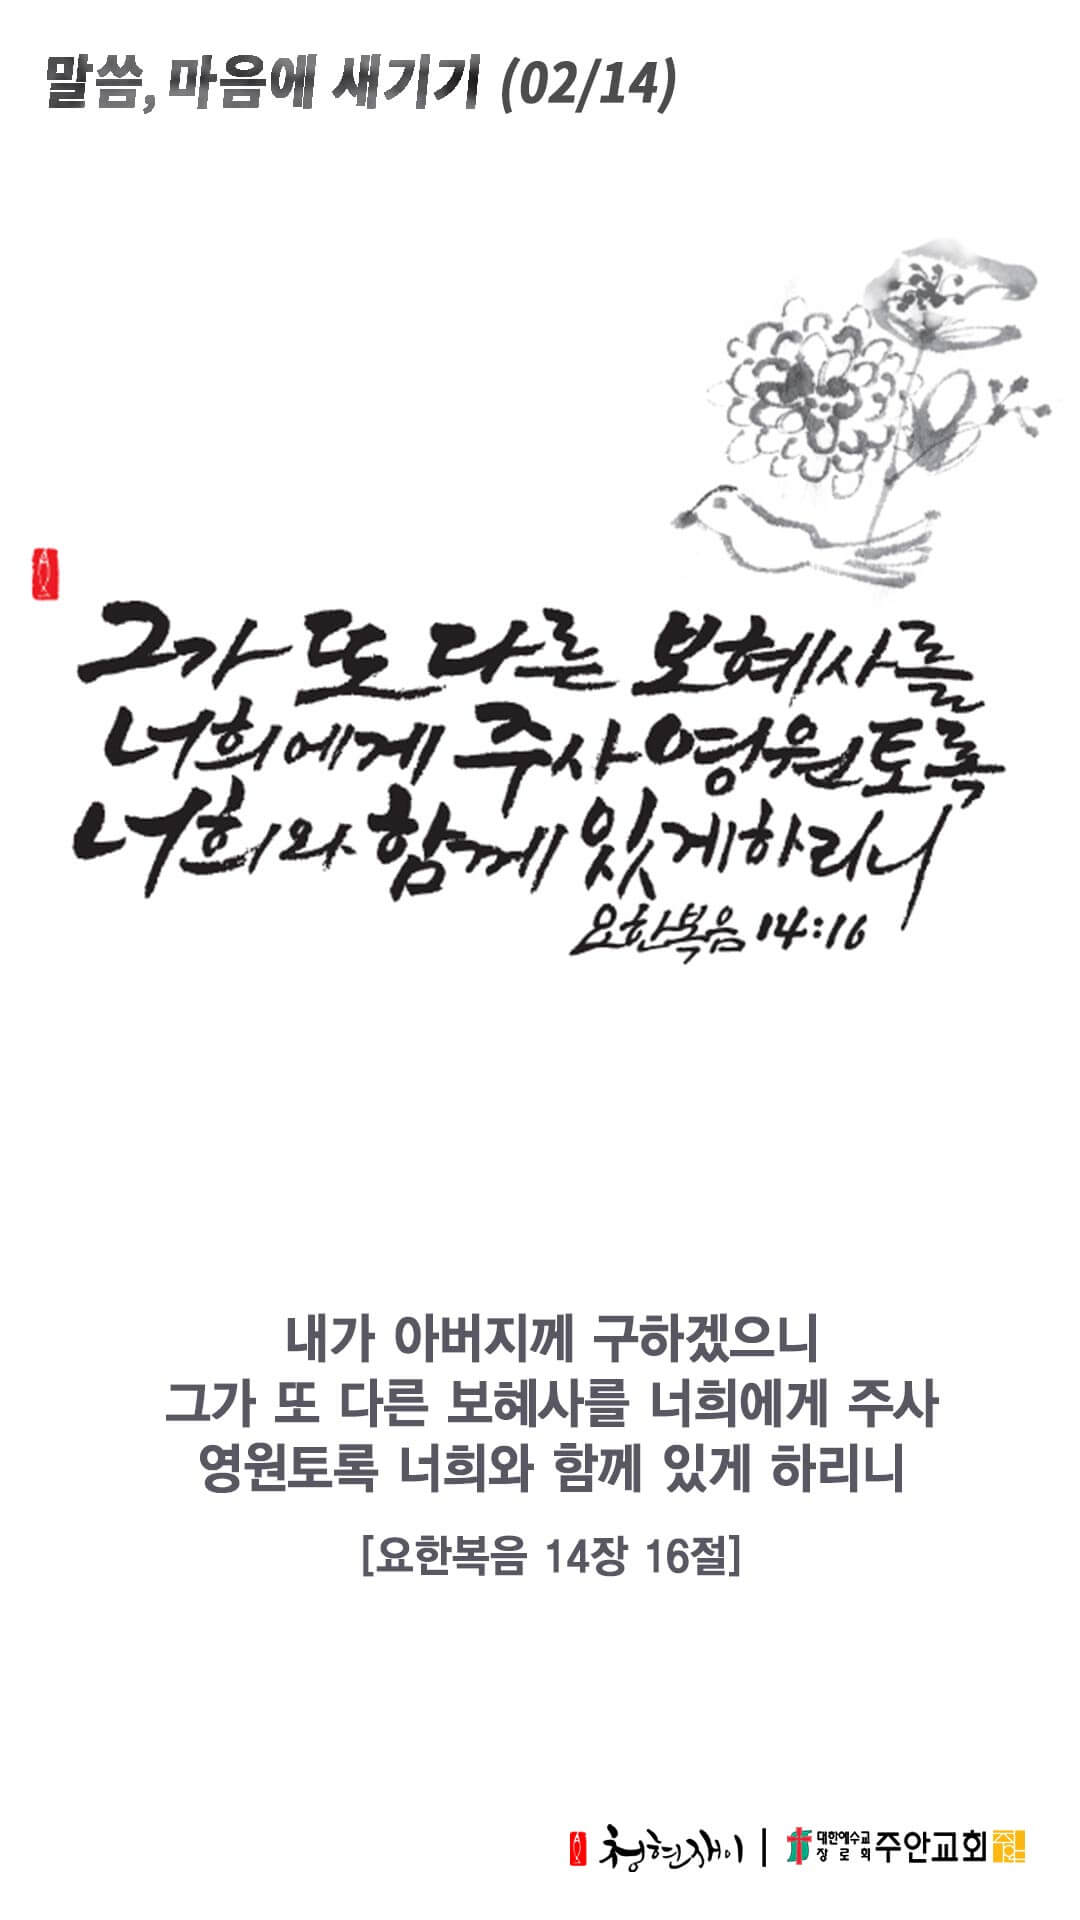 말씀, 마음에 새기기 (02/14)
그가 또 다른 보혜사를
너희에게 주사 영원토록
너희와 함께 있게하리니
요한복음 14:16
내가 아버지께 구하겠으니
그가 또 다른 보혜사를 너희에게 주사
영원토록 너희와 함께 있게 하리니
[요한복음 14장 16절]
청현재이 | 대한예수교 장로회 주안교회